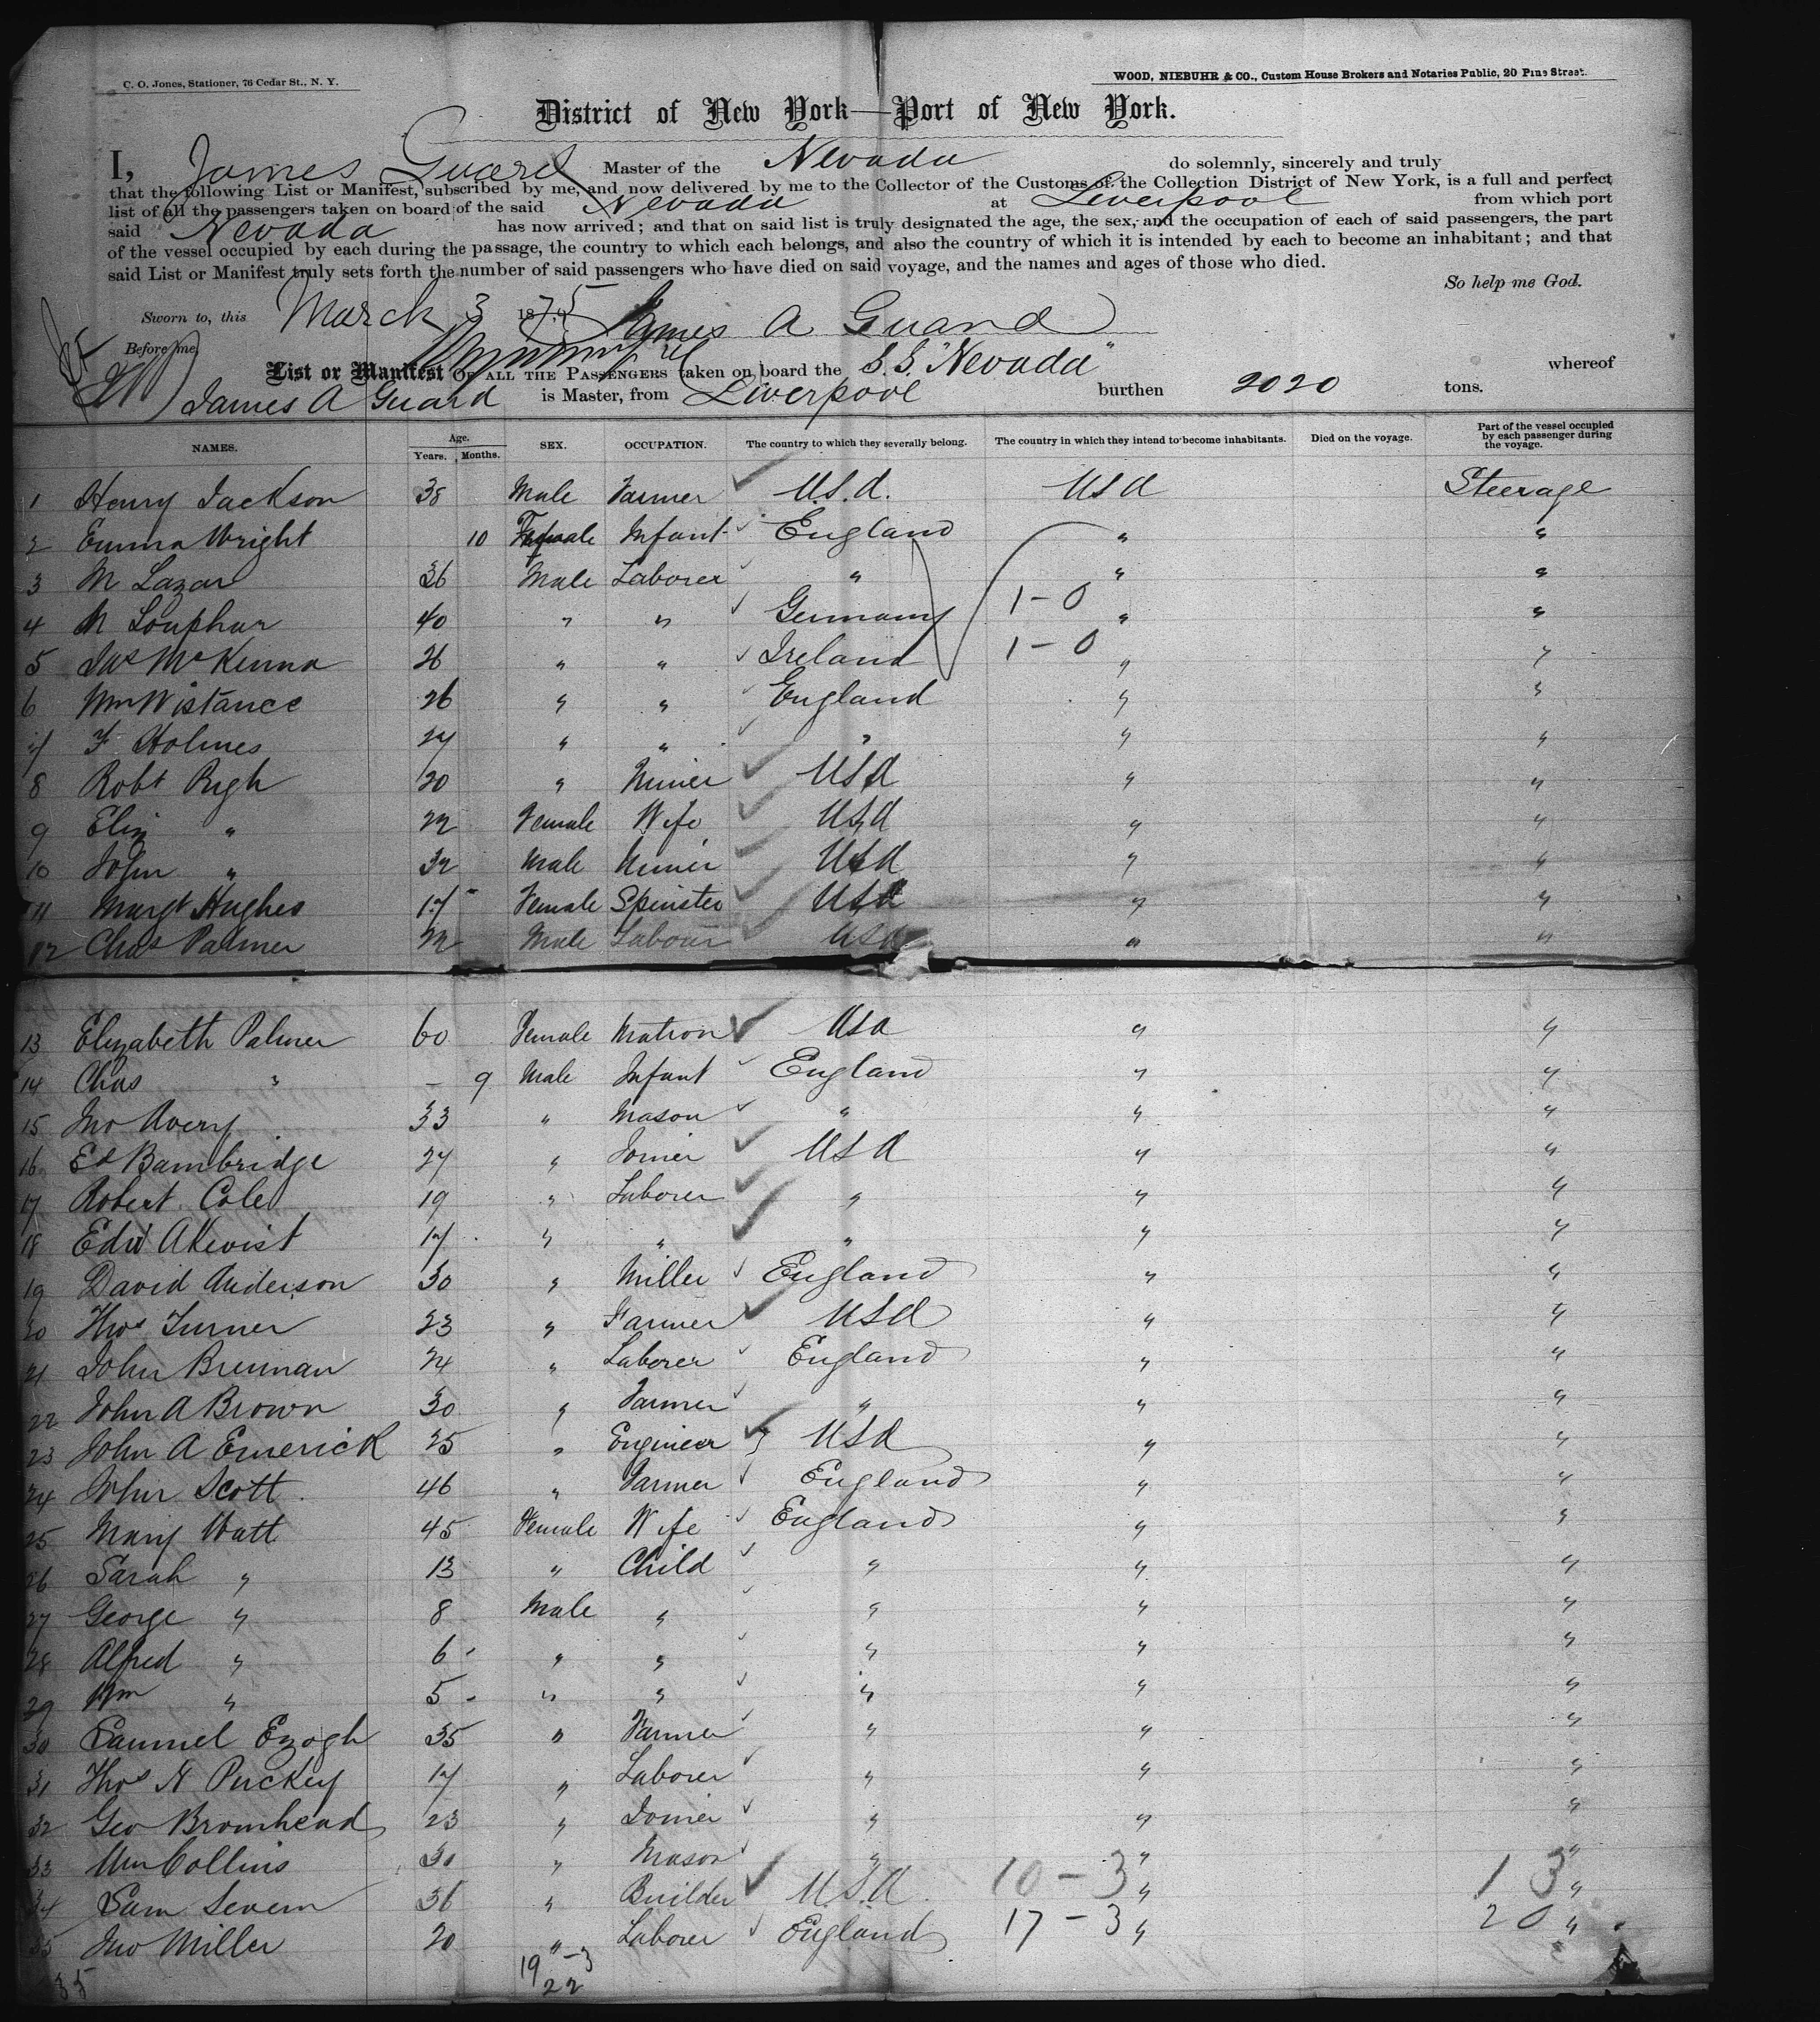 C. O. Jones, Stationer, 76 Cedar St., N. Y.
WOOD, NIEBUHR & CO., Custom House Brokers and Notaries Public, 20 Pine Street.
District of New York—Port of New York.
I, James Guard Master of the Nevada do solemnly, sincerely and truly
that the following List or Manifest, subscribed by me, and now delivered by me to the Collector of the Customs of the Collection District of New York, is a full and perfect
list of all the passengers taken on board of the said Nevada at Liverpool from which port
said Nevada has now arrived; and that on said list is truly designated the age, the sex, and the occupation of each of said passengers, the part
of the vessel occupied by each during the passage, the country to which each belongs, and also the country of which it is intended by each to become an inhabitant; and that
said List or Manifest truly sets forth the number of said passengers who have died on said voyage, and the names and ages of those who died.
So help me God.
Sworn to, this March 3 1875 James A Guard
Before me,
List or Manifest OF ALL THE PASSENGERS taken on board the S.S. "Nevada" whereof
James A Guard is Master, from Liverpool burthen 2020 tons.
NAMES. Age. Years. Months. SEX. OCCUPATION. The country to which they severally belong. The country in which they intend to become inhabitants. Died on the voyage. Part of the vessel occupied by each passenger during the voyage.
1 Henry Jackson 38 Male Farmer U.S.A. USA Steerage
2 Emma Wright 10 Female Infant England " "
3 M Lazar 36 Male Laborer " " "
4 N Louphar 40 " " Germany 1-0 " "
5 Jas McKenna 26 " " Ireland 1-0 " "
6 Wm Wistance 26 " " England " "
7 F Holmes 27 " " " " "
8 Robt Pugh 20 " Miner USA " "
9 Eliz " 22 Female Wife USA " "
10 John " 32 Male Miner USA " "
11 Margt Hughes 17 Female Spinster USA " "
12 Chas Palmer 22 Male Labour USA " "
13 Elizabeth Palmer 60 Female Matron USA " "
14 Chas " - 9 Male Infant England " "
15 Jno Avery 33 " Mason " " "
16 Ed Bambridge 27 " Joiner USA " "
17 Robert Cole 19 " Laborer " " "
18 Edw Akevist 17 " " " " "
19 David Anderson 30 " Miller England " "
20 Thos Turner 23 " Farmer USA " "
21 John Brennan 24 " Laborer England " "
22 John A Brown 30 " Farmer " " "
23 John A Emerick 25 " Engineer USA " "
24 John Scott 46 " Farmer England " "
25 Mary Watt 45 Female Wife England " "
26 Sarah " 13 " Child " " "
27 George " 8 Male " " " "
28 Alfred " 6 " " " " "
29 Wm " 5 " " " " "
30 Samuel Ezogh 35 " Farmer " " "
31 Thos N Puckey 17 " Laborer " " "
32 Geo Bromhead 23 " Joiner " " "
33 Wm Collins 30 " Mason " " "
34 Sam Severn 36 " Builder U.S.A. 10-3 " 13 "
35 Jno Miller 20 " Laborer England 17-3 " 20 "
35 19-3
22